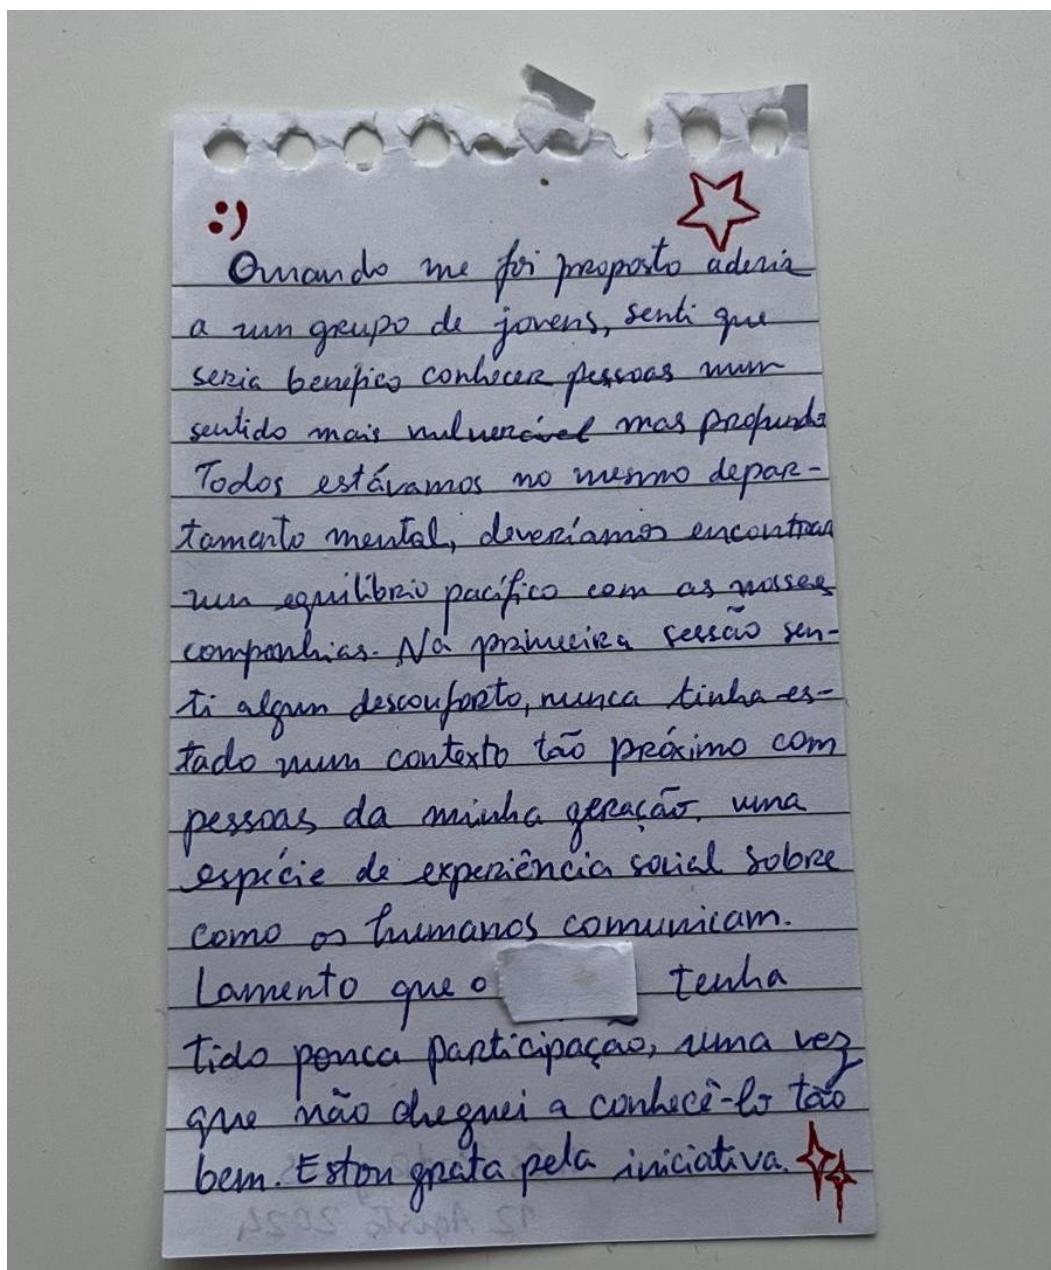 :)
Quando me foi proposto aderir
a um grupo de jovens, senti que
seria benéfico conhecer pessoas num
sentido mais vulnerável mas profundo
Todos estávamos no mesmo depar-
tamento mental, deveríamos encontrar
um equilíbrio pacífico com as nossas
companhias. Na primeira sessão sen-
ti algum desconforto, nunca tinha es-
tado num contexto tão próximo com
pessoas da minha geração, uma
espécie de experiência social sobre
como os humanos comunicam.
Lamento que o tenha
tido pouca participação, uma vez
que não cheguei a conhecê-lo tão
bem. Estou grata pela iniciativa.
12 Agosto 2024